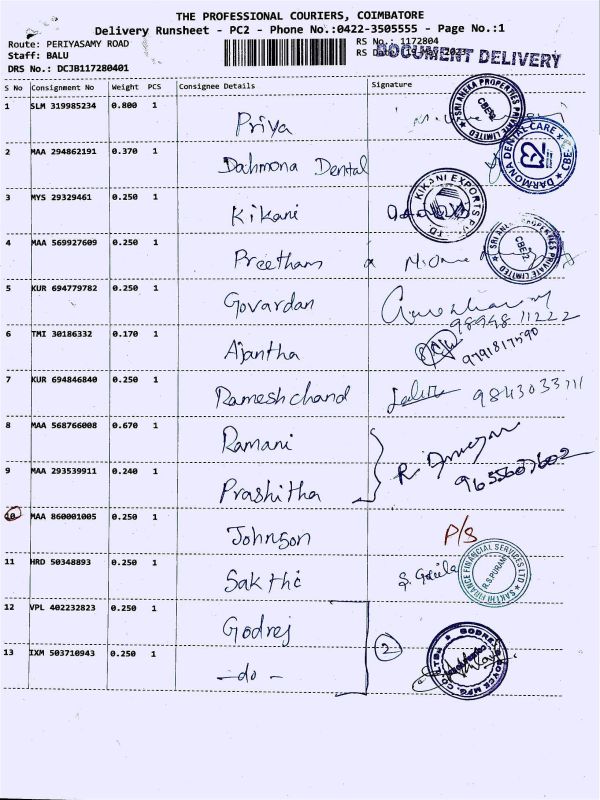 THE PROFESSIONAL COURIERS, COIMBATORE
Delivery Runsheet - PC2 - Phone No.:0422-3505555 - Page No.:1
Route: PERIYASAMY ROAD RS No.: 1172804
Staff: BALU RS Date: 19 May 2023
DOCUMENT DELIVERY
DRS No.: DCJB117280401
S No Consignment No Weight PCS Consignee Details Signature
1 SLM 319985234 0.800 1 Priya
SRI ANEKA PROPERTIES PRIVATE LIMITED CBE-12
2 MAA 294862191 0.370 1 Dahmona Dental
DARMONA DENTAL CARE CBE
3 MYS 29329461 0.250 1 Kikani
KIKANI EXPORTS PVT LTD
4 MAA 569927609 0.250 1 Preetham
SRI ANEKA PROPERTIES PRIVATE LIMITED CBE-12
5 KUR 694779782 0.250 1 Govardan
98948 11222
6 TMI 30186332 0.170 1 Ajantha
9791817590
7 KUR 694846840 0.250 1 Rameshchand 9843033111
8 MAA 568766008 0.670 1 Ramani
9 MAA 293539911 0.240 1 Prashitha
9655607602
10 MAA 860001005 0.250 1 Johnson P/S
11 HRD 50348893 0.250 1 Sakthi
SAKTHI FINANCE FINANCIAL SERVICES LTD R.S.PURAM
12 VPL 402232823 0.250 1 Godrej
2
13 IXM 503710943 0.250 1 -do-
GODREJ & BOYCE MFG. CO. LTD